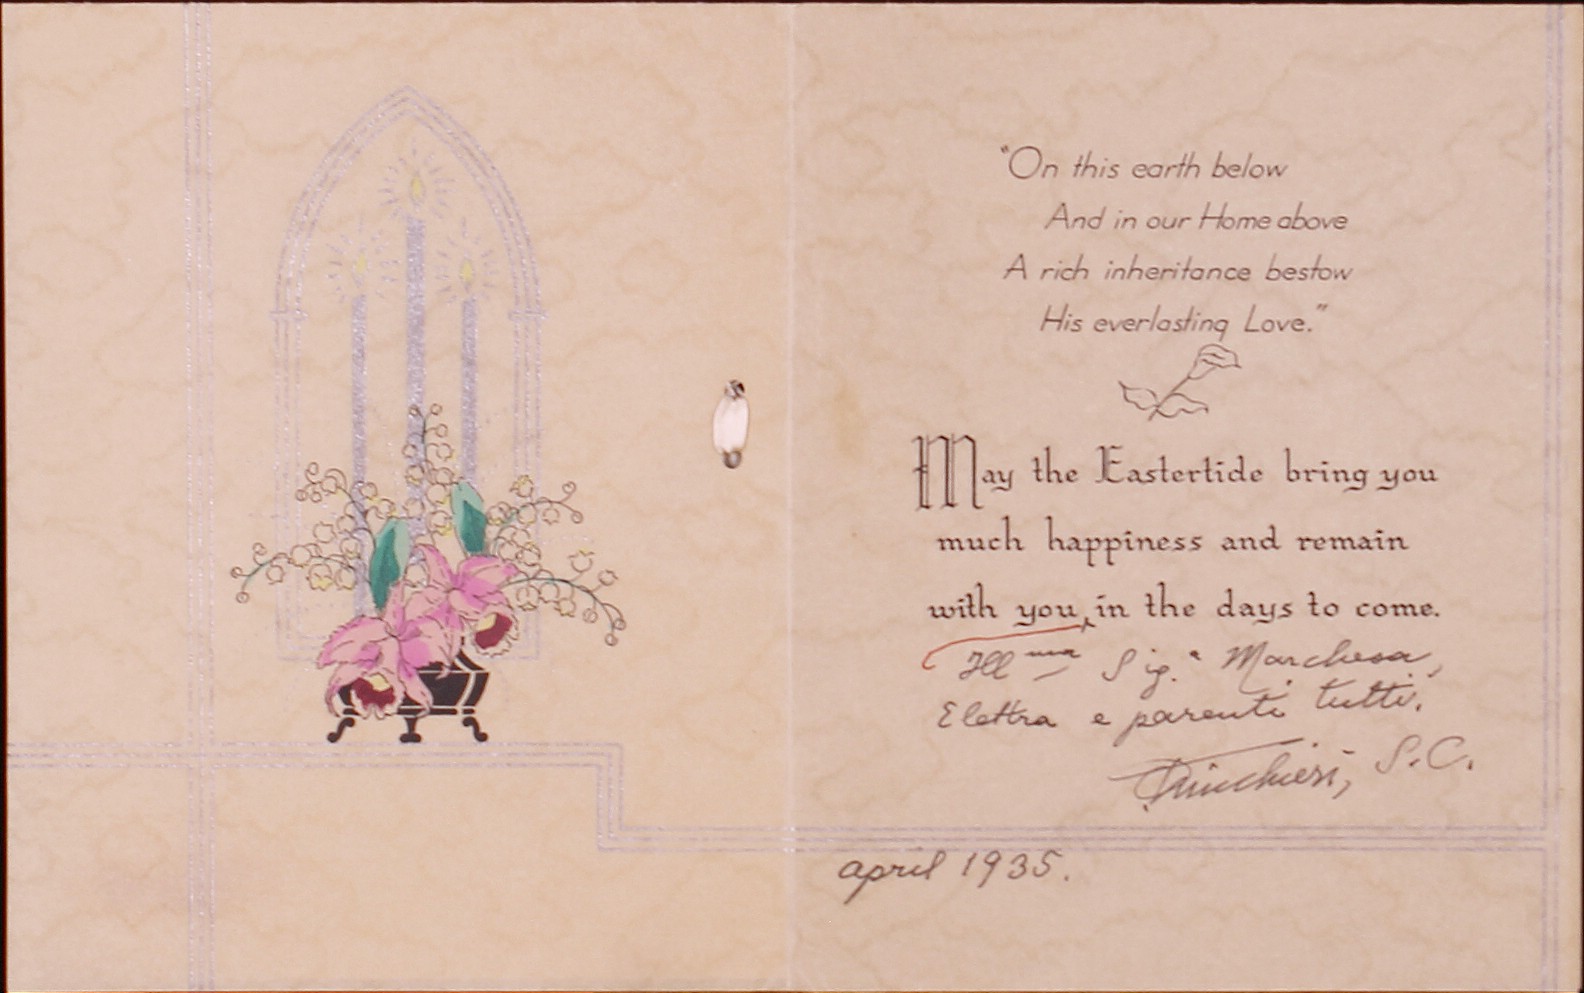 "On this earth below
And in our Home above
A rich inheritance bestow
His everlasting Love."
May the Eastertide bring you
much happiness and remain
with you, in the days to come.
Ill ma Sig.a Marchesa,
Elettra e parenti tutti.
S.C.
april 1935.